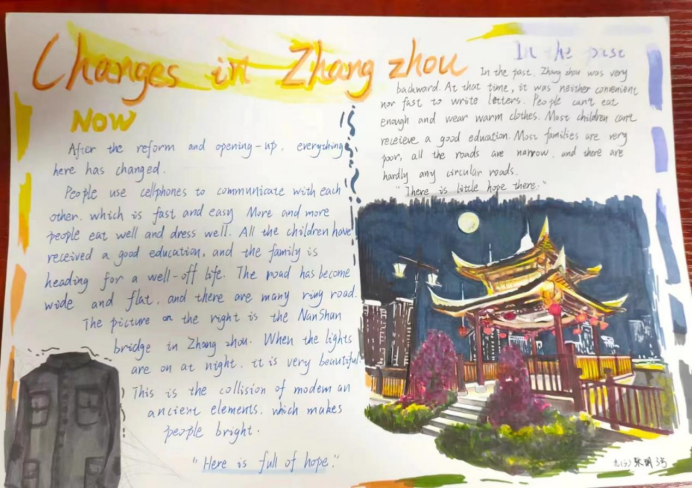 Changes in Zhang zhou
In the past
In the past, Zhang zhou was very
backward. At that time, it was neither convenient
nor fast to write letters. People can't eat
enough and wear warm clothes. Most children can't
receieve a good eduation. Most families are very
poor, all the roads are narrow, and there are
hardly any circular roads.
"There is little hope there."
Now
After the reform and opening-up, everything
here has changed.
People use cellphones to communicate with each
other, which is fast and easy. More and more
people eat well and dress well. All the children have
received a good education, and the family is
heading for a well-off life. The road has become
wide and flat, and there are many ring road.
The picture on the right is the NanShan
bridge in Zhang zhou. When the lights
are on at night, it is very beautiful.
This is the collision of modern an
ancient elements, which makes
people bright.
"Here is full of hope."